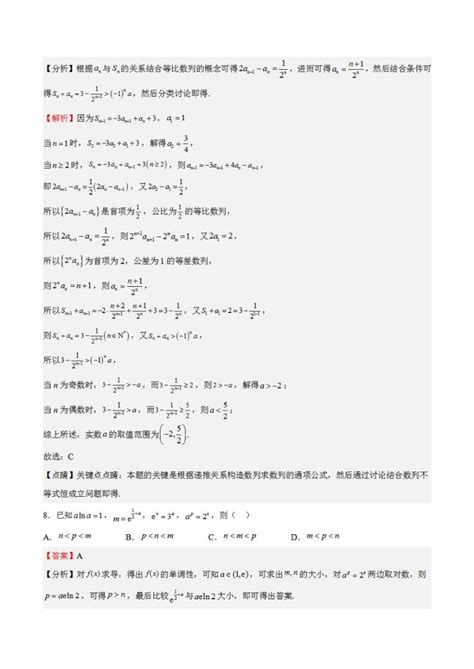 【分析】根据 aₙ 与 Sₙ 的关系结合等比数列的概念可得 2aₙ₊₁ − aₙ = 1/2ⁿ，进而可得 aₙ = (n+1)/2ⁿ，然后结合条件可
得 Sₙ + aₙ = 3 − 1/2ⁿ⁻¹ > (−1)ⁿ a，然后分类讨论即得.
【解析】因为 Sₙ₊₁ = −3aₙ₊₁ + aₙ + 3，a₁ = 1
当 n = 1 时，S₂ = −3a₂ + a₁ + 3，解得 a₂ = 3/4，
当 n ≥ 2 时，Sₙ = −3aₙ + aₙ₋₁ + 3 (n ≥ 2)，则 aₙ₊₁ = −3aₙ₊₁ + 4aₙ − aₙ₋₁，
即 2aₙ₊₁ − aₙ = 1/2 (2aₙ − aₙ₋₁)，又 2a₂ − a₁ = 1/2，
所以 {2aₙ₊₁ − aₙ} 是首项为 1/2，公比为 1/2 的等比数列，
所以 2aₙ₊₁ − aₙ = 1/2ⁿ，则 2ⁿ⁺¹aₙ₊₁ − 2ⁿaₙ = 1，又 2a₁ = 2，
所以 {2ⁿaₙ} 为首项为 2，公差为 1 的等差数列，
则 2ⁿaₙ = n + 1，则 aₙ = (n+1)/2ⁿ，
所以 Sₙ₊₁ + aₙ₊₁ = −2·(n+2)/2ⁿ⁺¹ + (n+1)/2ⁿ + 3 = 3 − 1/2ⁿ，又 S₁ + a₁ = 2 = 3 − 1/2¹⁻¹，
则 Sₙ + aₙ = 3 − 1/2ⁿ⁻¹ (n ∈ N*)，又 Sₙ + aₙ > (−1)ⁿ a，
所以 3 − 1/2ⁿ⁻¹ > (−1)ⁿ a，
当 n 为奇数时，3 − 1/2ⁿ⁻¹ > −a，而 3 − 1/2ⁿ⁻¹ ≥ 2，则 2 > −a，解得 a > −2；
当 n 为偶数时，3 − 1/2ⁿ⁻¹ > a，而 3 − 1/2ⁿ⁻¹ ≥ 5/2，则 a < 5/2；
综上所述，实数 a 的取值范围为 (−2, 5/2).
故选：C
【点睛】关键点点睛：本题的关键是根据递推关系构造数列求数列的通项公式，然后通过讨论结合数列不
等式恒成立问题即得.
8．已知 a ln a = 1，m = e^(1/2+a)，eⁿ = 3ᵃ，aᵖ = 2ᵃ，则（ ）
A．n < p < m B．p < n < m C．n < m < p D．m < p < n
【答案】A
【分析】对 f(x) 求导，得出 f(x) 的单调性，可知 a ∈ (1, e)，可求出 m, n 的大小，对 aᵖ = 2ᵃ 两边取对数，则
p = a e ln 2，可得 p > n，最后比较 与 a e ln 2 大小，即可得出答案.